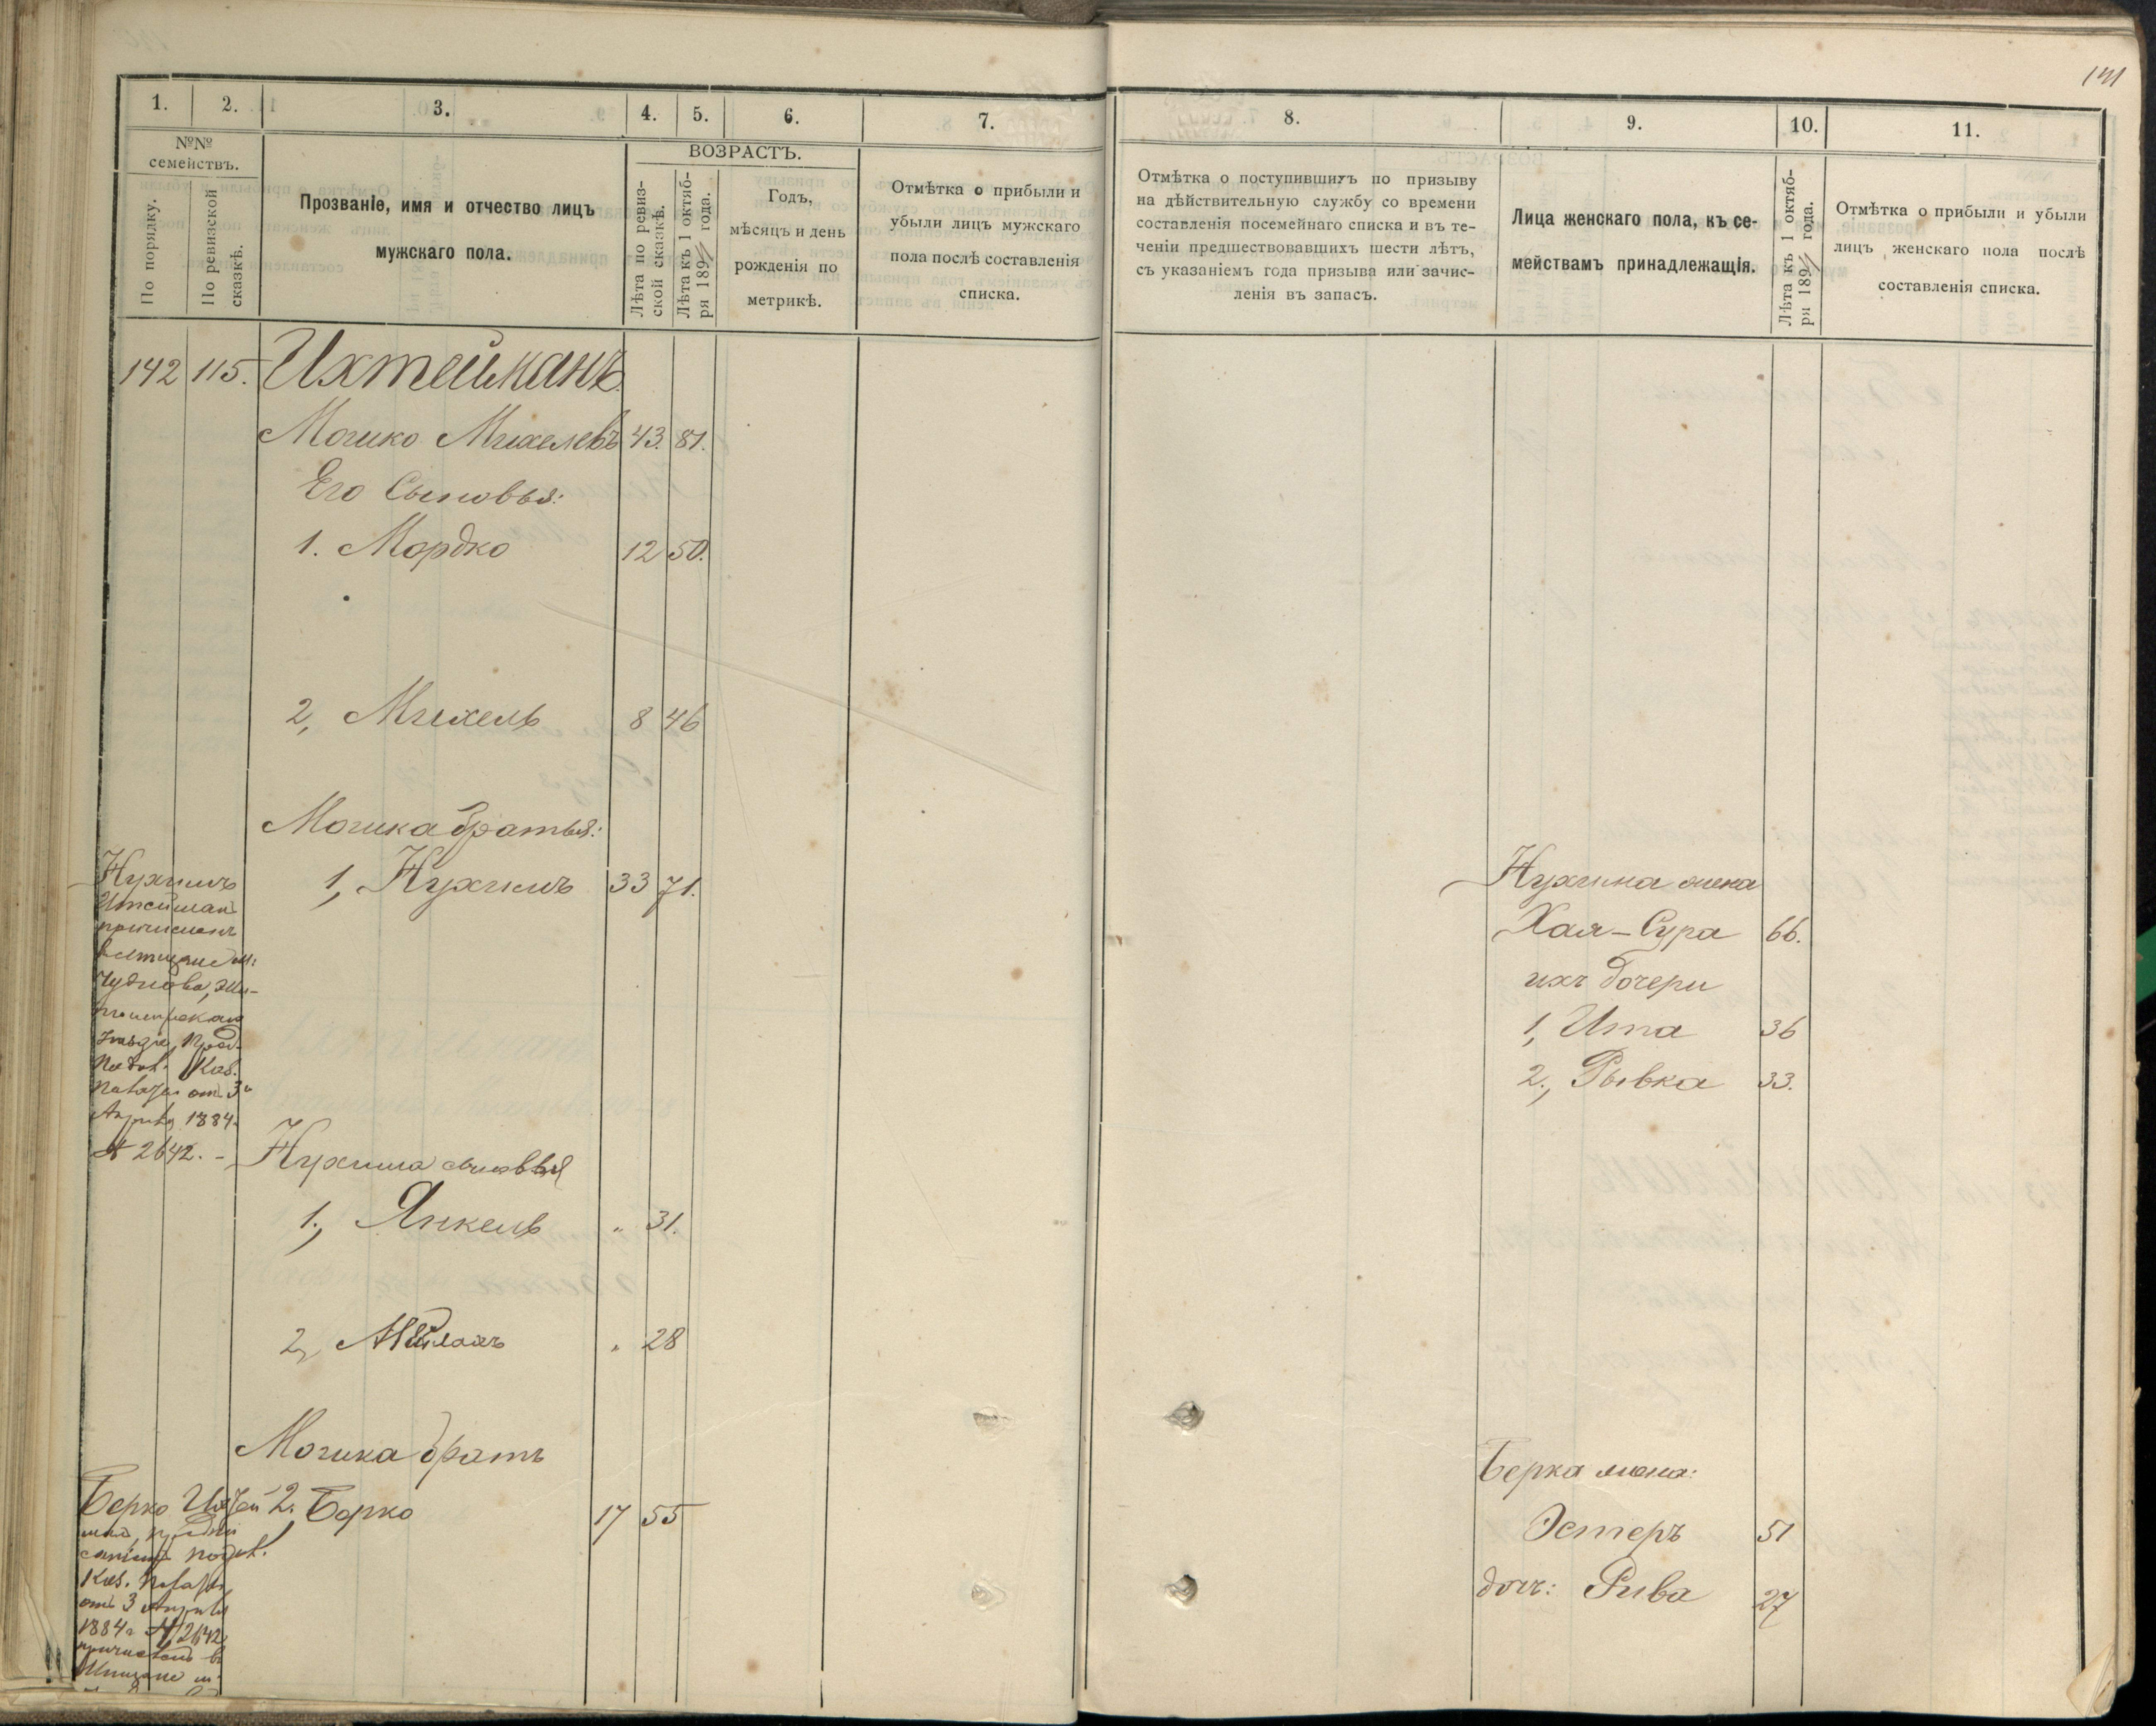 141
1. 2. 3. 4. 5. 6. 7.
№№ семействъ.
По порядку.
По ревизской сказкѣ.
Прозваніе, имя и отчество лицъ
мужскаго пола.
ВОЗРАСТЪ.
Лѣта по ревиз-
ской сказкѣ.
Лѣта къ 1 октяб-
ря 189 года.
Годъ,
мѣсяцъ и день
рожденія по
метрикѣ.
Отмѣтка о прибыли и
убыли лицъ мужскаго
пола послѣ составленія
списка.
142 115. Ихтейманъ
Мошко Михелевъ 43. 81.
Его Сыновья:
1. Мордко 12 50.
2, Михель 8 46
Мошка братья:
1, Нухимъ 33 71.
Нухимъ
причисленъ
Чуднова, Жи-
томирскаго
Каз.
Палаты отъ 3го
Апрѣля 1884
№ 2642. -
Нухима сыновья
1., Янкель " 31.
2, " 28
Мошка братъ
2. Берко 17 55
Берко
Каз. Палаты
отъ 3 Апрѣля
1884 г. № 2642
причисленъ въ
8. 9. 10. 11.
Отмѣтка о поступившихъ по призыву
на дѣйствительную службу со времени
составленія посемейнаго списка и въ те-
ченіи предшествовавшихъ шести лѣтъ,
съ указаніемъ года призыва или зачис-
ленія въ запасъ.
Лица женскаго пола, къ се-
мействамъ принадлежащія.
Лѣта къ 1 октяб-
ря 189 года.
Отмѣтка о прибыли и убыли
лицъ женскаго пола послѣ
составленія списка.
Нухима жена
Хая-Сура 66.
ихъ дочери
1, Ита 36
2., Рывка 33.
Берка жена:
Эстеръ 51
дочь: Рива 27